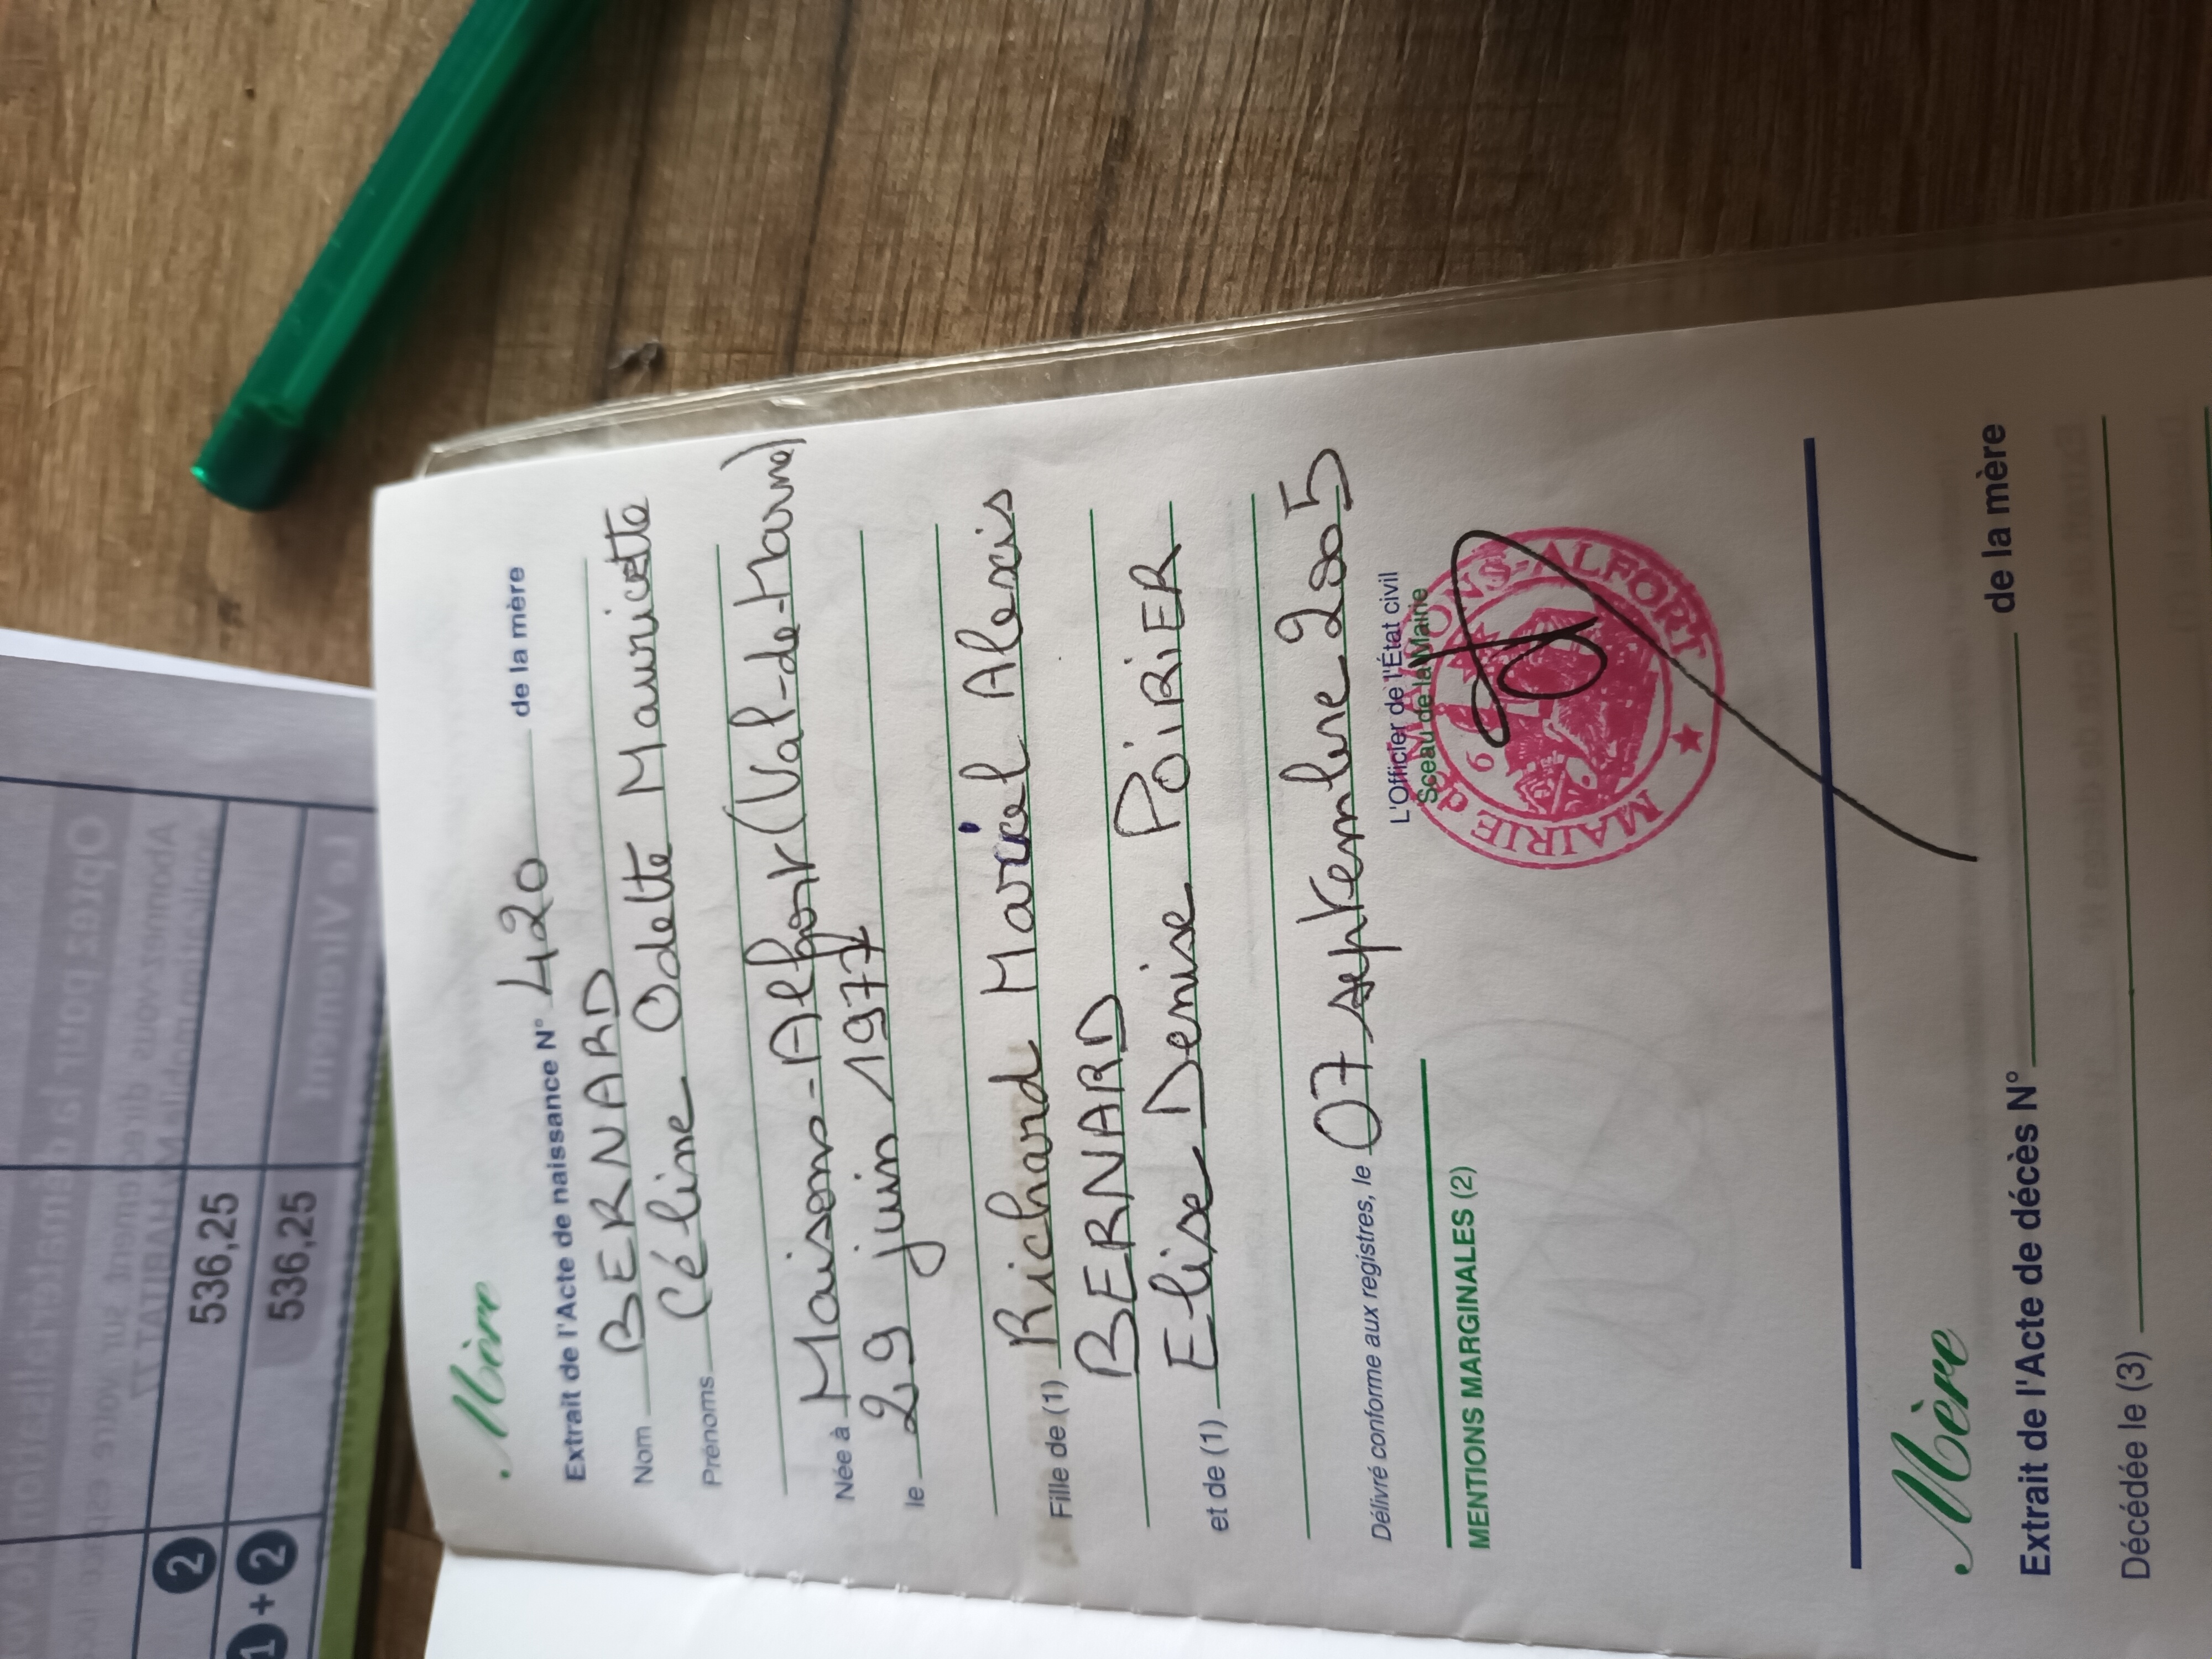 Mère
Extrait de l'Acte de naissance N° 420 de la mère
Nom BERNARD
Prénoms Céline Odette Mauricette
Née à Maisons-Alfort (Val-de-Marne)
le 29 juin 1977
Fille de (1) Richard Marcel Alexis
BERNARD
et de (1) Elise Denise POiRiER
Délivré conforme aux registres, le 07 septembre 2005
L'Officier de l'État civil
Sceau de la Mairie
MAIRIE de MAISONS-ALFORT
9
MENTIONS MARGINALES (2)
Mère
Extrait de l'Acte de décès N° de la mère
Décédée le (3)
2 536,25
1 + 2 536,25